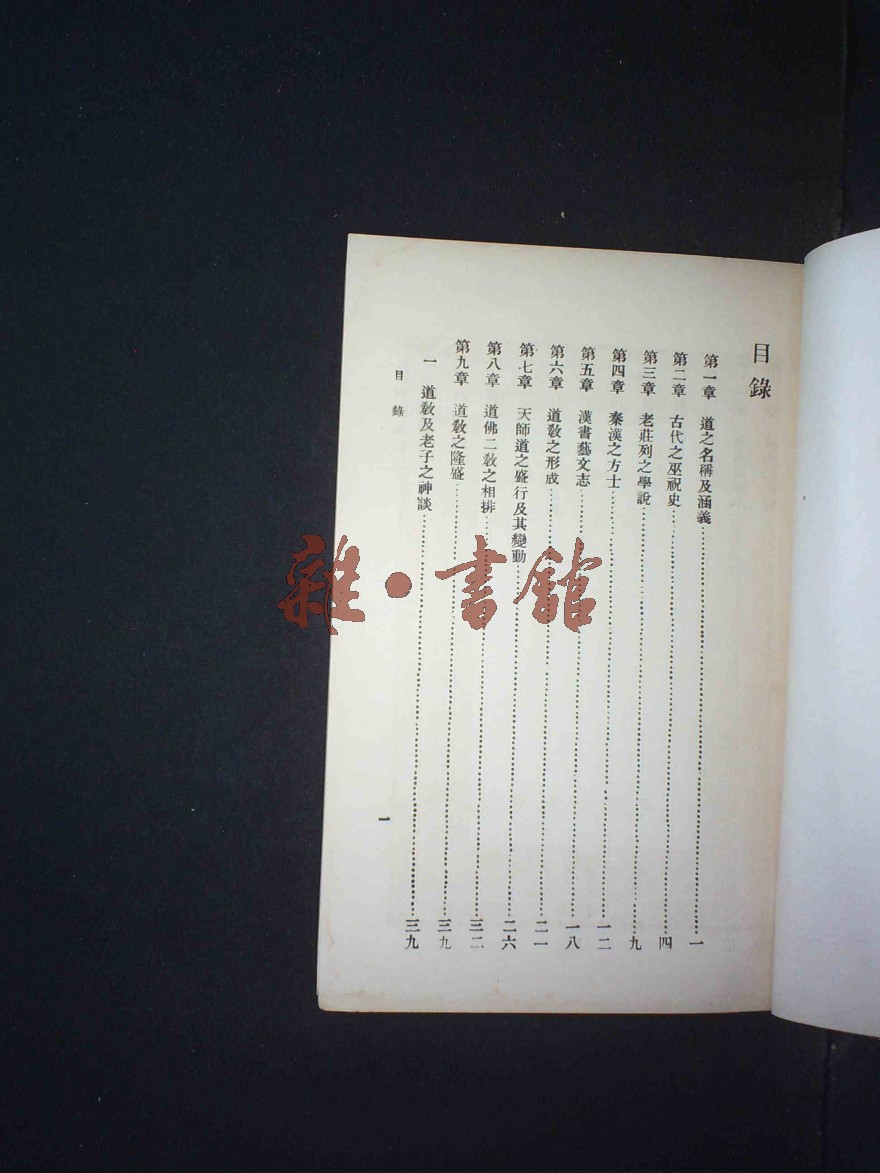 目錄
第一章 道之名稱及涵義……一
第二章 古代之巫祝史……四
第三章 老莊列之學說……九
第四章 秦漢之方士……一二
第五章 漢書藝文志……一八
第六章 道敎之形成……二一
第七章 天師道之盛行及其變動……二六
第八章 道佛二敎之相排……三二
第九章 道敎之隆盛……三九
一 道敎及老子之神談……三九
目錄
一
雜·書館